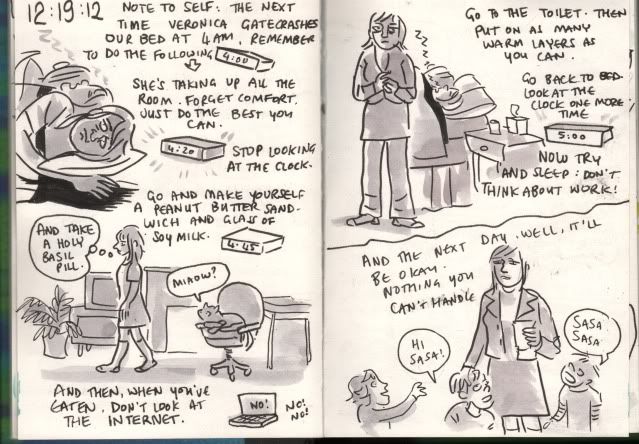 12:19:12
NOTE TO SELF: THE NEXT
TIME VERONICA GATECRASHES
OUR BED AT 4AM, REMEMBER
TO DO THE FOLLOWING
4:00
SHE'S TAKING UP ALL THE
ROOM. FORGET COMFORT.
JUST DO THE BEST YOU
CAN.
4:20
STOP LOOKING
AT THE CLOCK.
GO AND MAKE YOURSELF
A PEANUT BUTTER SAND-
WICH AND GLASS OF
SOY MILK.
4:45
AND TAKE
A HOLY
BASIL
PILL.
MIAOW?
AND THEN, WHEN YOU'VE
EATEN. DON'T LOOK AT
THE INTERNET.
NO!
NO!
NO!
GO TO THE TOILET. THEN
PUT ON AS MANY
WARM LAYERS AS
YOU CAN.
GO BACK TO BED.
LOOK AT THE
CLOCK ONE MORE
TIME
5:00
NOW TRY
AND SLEEP: DON'T
THINK ABOUT WORK!
AND THE NEXT DAY. WELL, IT'LL
BE OKAY.
NOTHING YOU
CAN'T HANDLE
HI
SASA!
SASA
SASA